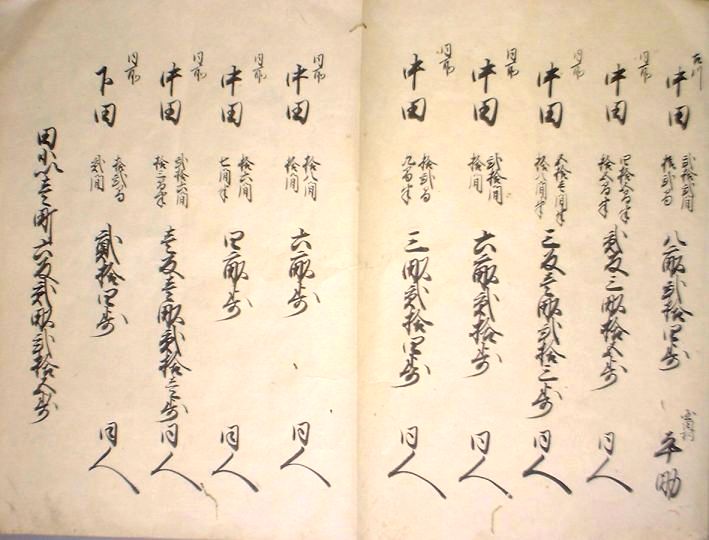 古川
中田 弐拾弐間 拾弐間 八畝弐拾四歩 平助
同所
中田 四拾五間半 拾五間半 弐反三畝拾五歩 同人
同所
中田 五拾壱間半 拾八間半 三反壱畝弐拾三歩 同人
同所
中田 弐拾間 拾間 六畝弐拾歩 同人
同所
中田 拾弐間 九間半 三畝弐拾四歩 同人
同所
中田 拾八間 拾間 六畝歩 同人
同所
中田 拾六間 七間半 四畝歩 同人
同所
中田 弐拾六間 拾三間半 壱反壱畝弐拾壱歩 同人
同所
下田 拾弐間 弐間 貳拾四歩 同人
田小以壱町六反弐畝弐拾五歩